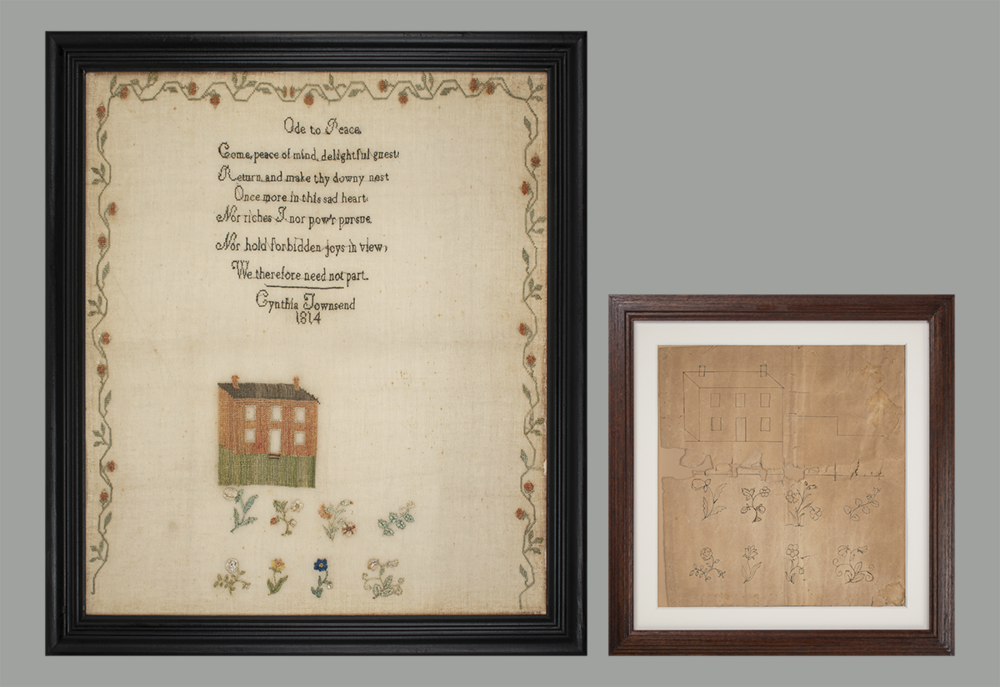 Ode to Peace
Come, peace of mind, delightful guest,
Return and make thy downy nest
Once more in this sad heart
Nor riches I nor pow'r pursue
Nor hold forbidden joys in view,
We therefore need not part.
Cynthia Townsend
1814